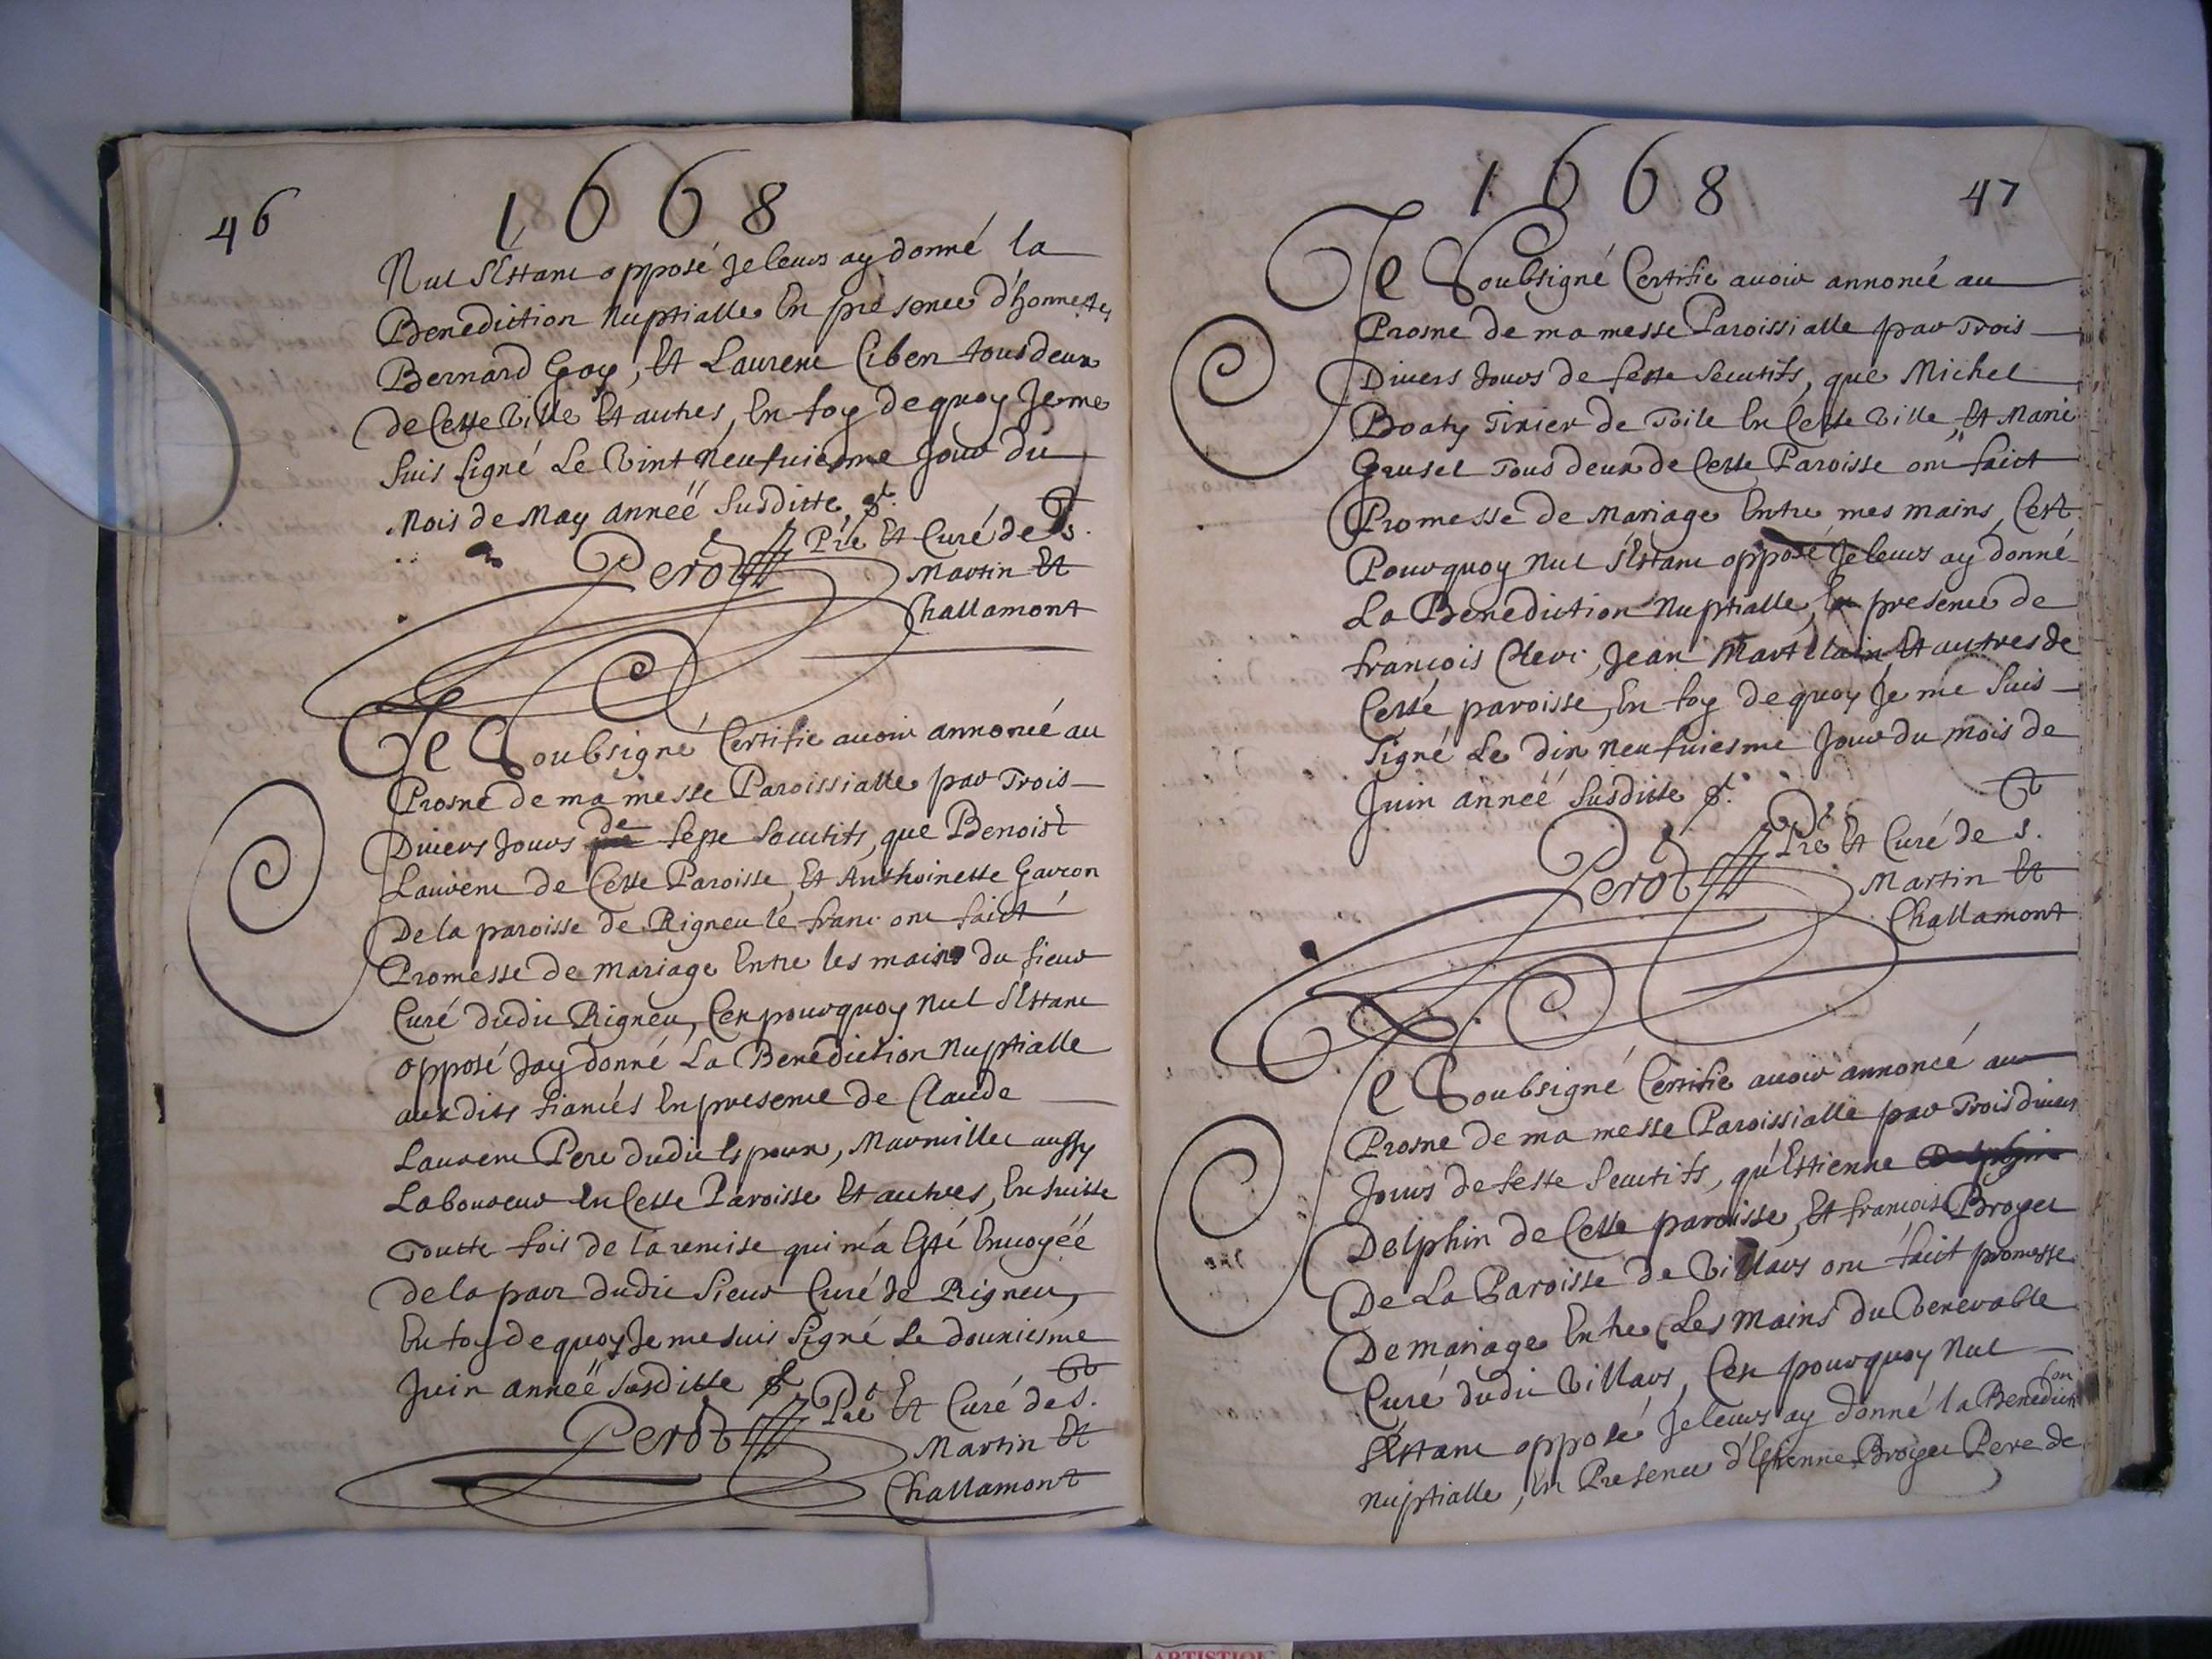 46
1668
Nul s'éstant opposé Je leurs ay donné la
Benediction Nuptialle En presence d'honnestes
Bernard Goy, Et Laurent Ciben tous deux
de Cette Ville Et autres, En foy de quoy Je me
suis signé Le Vint neufuiesme Jour du
Mois de May annéë susditte
Perot Pre Et Curé de S.
Martin Et
Challamont
Je Soubsigné Certifie auoir annoncé au
Prosne de ma messe Paroissialle par Trois
Diuers Jours de feste secutifs, que Benoist
Laurent de Cette Paroisse Et Anthoinette Garron
De la paroisse de Rigneu le franc ont faict
Promesse de Mariage Entre les mains du sieur
Curé dudit Rigneu, C'est pourquoy Nul s'éstant
opposé J'ay donné La Benediction Nuptialle
aux dits fiancés En presence de Claude
Laurent Pere dudit Espoux, Marmillet aussy
Laboureur En Cette Paroisse Et autres, En suitte
Toutte fois de la remise qui m'a Esté Enuoyéë
de la part dudit sieur Curé de Rigneu,
En foy de quoy Je me suis signé Le douziesme
Juin annéë susditte
Perot Pre Et Curé de S.
Martin Et
Challamont
1668
47
Je Soubsigné Certifie auoir annoncé au
Prosne de ma messe Paroissialle par Trois
Diuers Jours de feste secutifs, que Michel
Boaty Tixier de Toile En Cette Ville, Et Marie
Grusel Tous deux de Cette Paroisse ont faict
Promesse de Mariage Entre mes mains, C'est
Pourquoy Nul s'éstant opposé Je leurs ay donné
La Benediction Nuptialle, En presence de
françois Clevi, Jean Martelain Et autres de
Cette paroisse, En foy de quoy Je me suis
signé Le dix neufuiesme Jour du mois de
Juin annéë susditte
Perot Pre Et Curé de S.
Martin Et
Challamont
Je Soubsigné Certifie auoir annoncé au
Prosne de ma messe Paroissialle par Trois diuers
Jours de feste secutifs, qu'Estienne
Delphin de Cette paroisse, Et françoise Broyer
De La Paroisse de Villars ont faict promesse
De mariage Entre Les mains du Venerable
Curé dudit Villars, C'est pourquoy Nul
s'éstant opposé Je leurs ay donné la Benediction
Nuptialle, En Presence d'Estienne Broyer Pere de